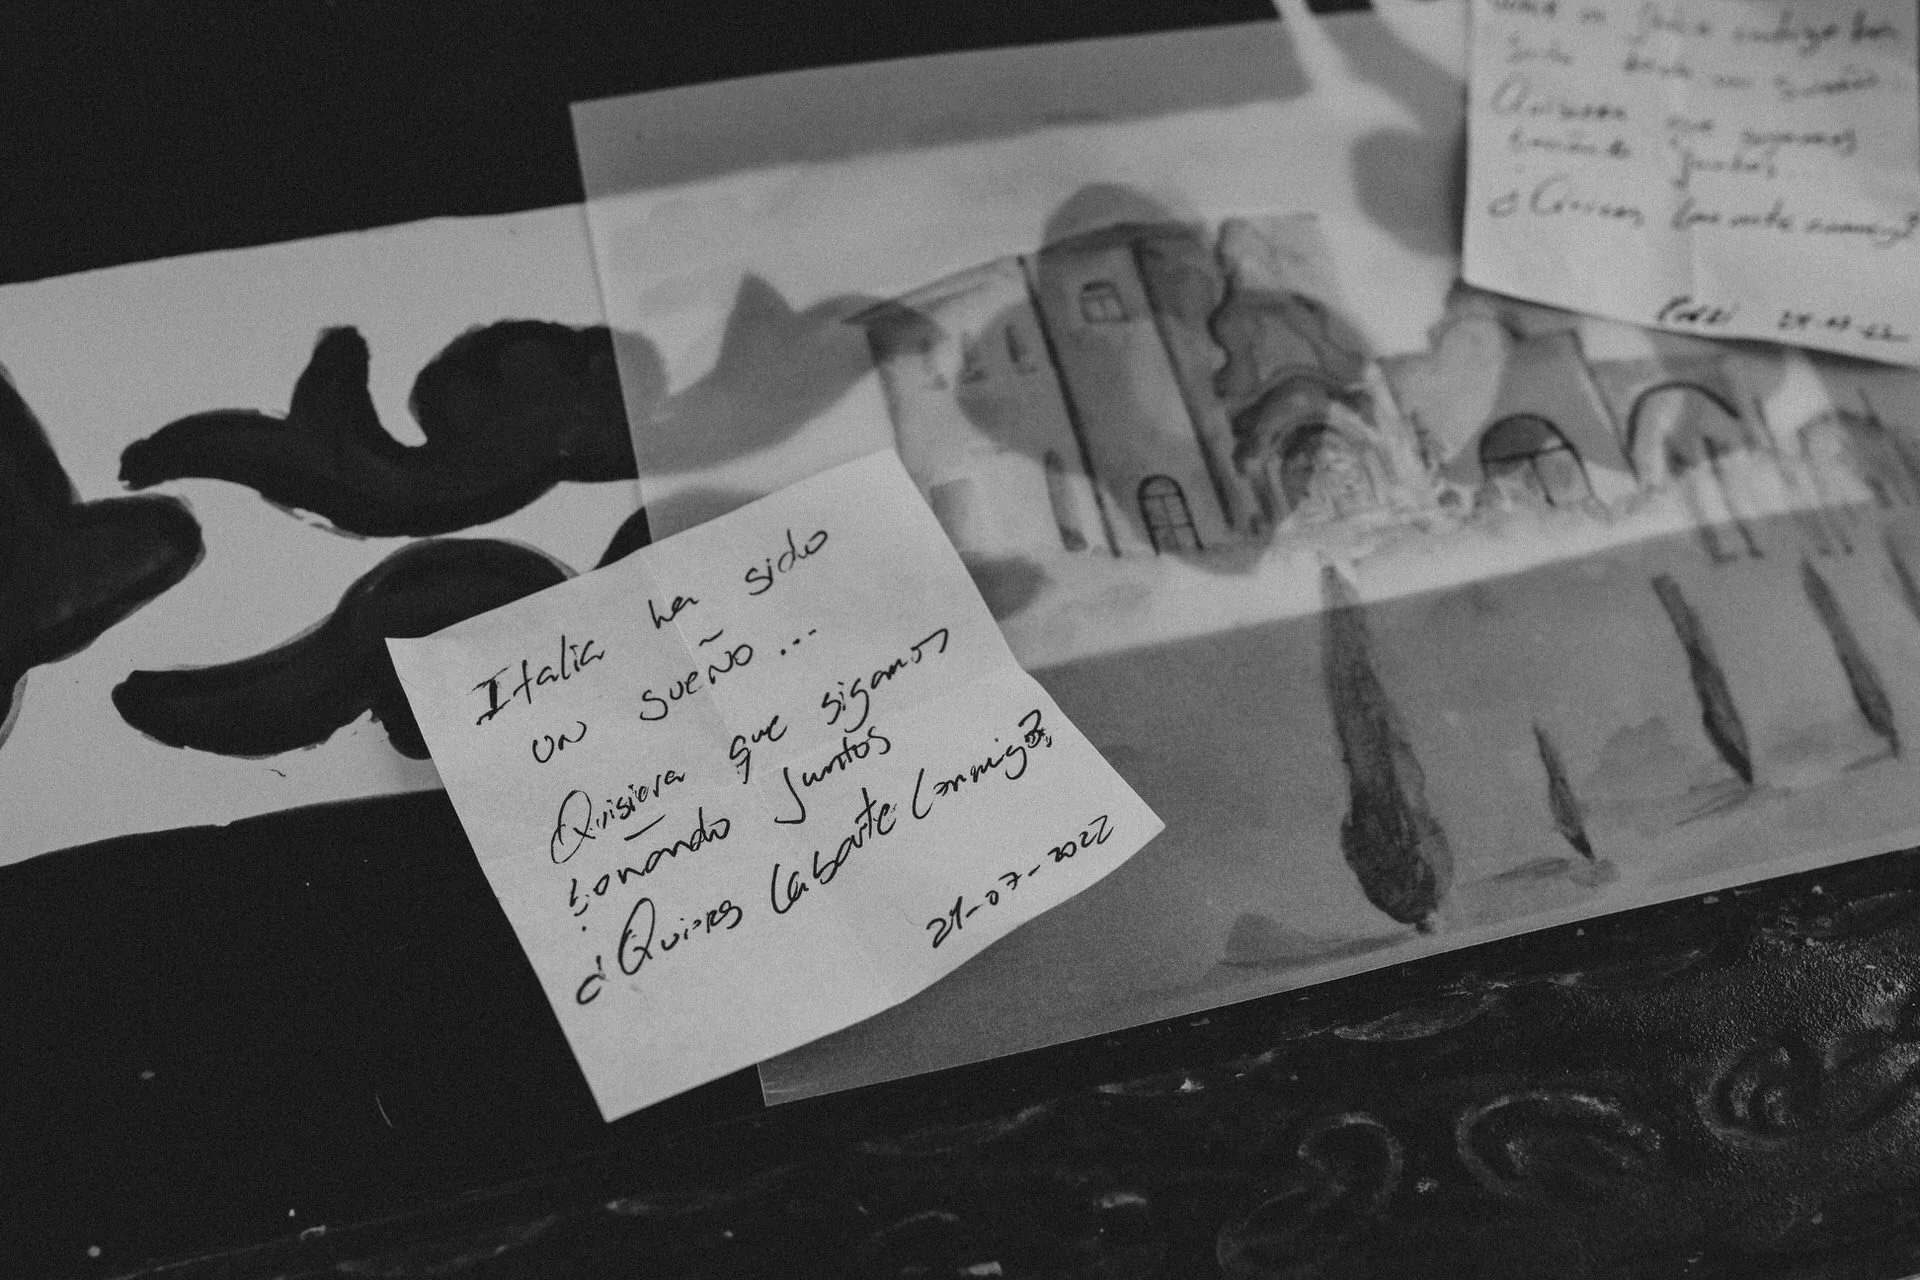 Italia ha sido
un sueño...
Quisiera que sigamos
soñando juntos
¿Quieres Casarte Conmigo?
29-07-2022
sueño...
Quisiera que sigamos
soñando juntos...
¿Quieres Casarte conmigo?